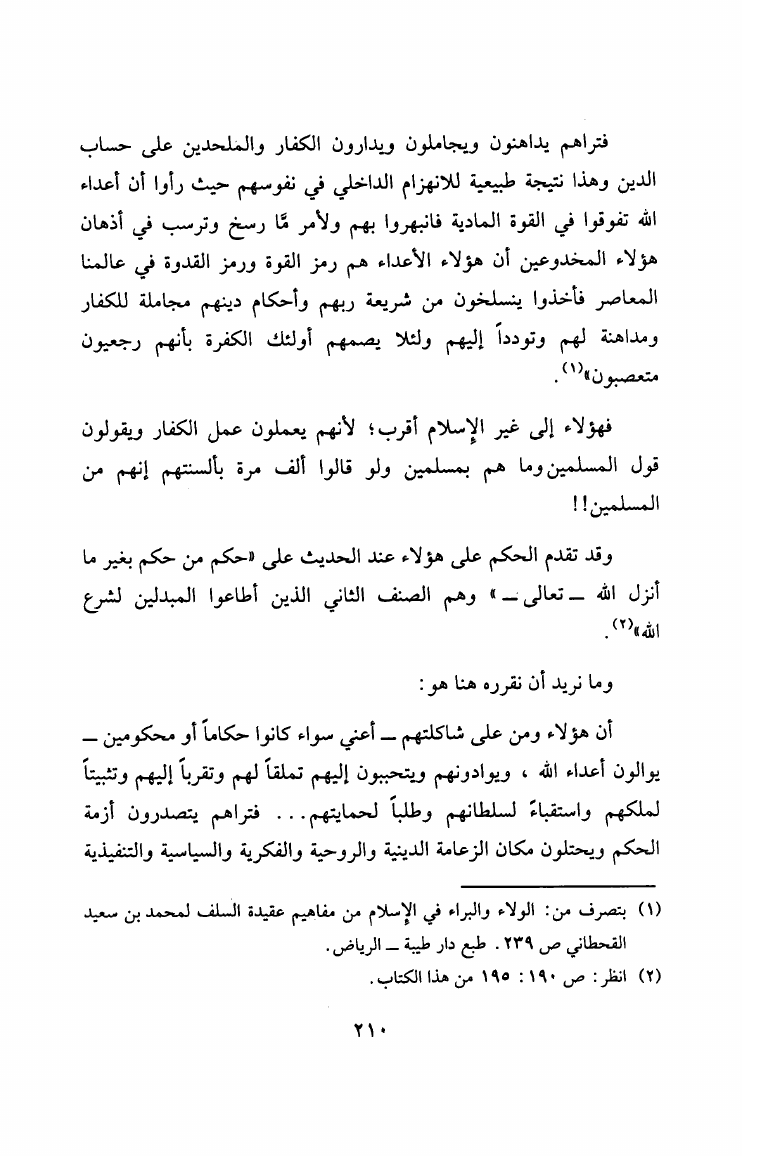 فتراهم يداهنون ويجاملون ويدارون الكفار والملحدين على حساب
الدين وهذا نتيجة طبيعية للانهزام الداخلي في نفوسهم حيث رأوا أن أعداء
الله تفوقوا في القوة المادية فانبهروا بهم ولأمر مَّا رسخ وترسب في أذهان
هؤلاء المخدوعين أن هؤلاء الأعداء هم رمز القوة ورمز القدوة في عالمنا
المعاصر فأخذوا ينسلخون من شريعة ربهم وأحكام دينهم مجاملة للكفار
ومداهنة لهم وتودداً إليهم ولئلا يصمهم أولئك الكفرة بأنهم رجعيون
متعصبون»(١).
فهؤلاء إلى غير الإسلام أقرب؛ لأنهم يعملون عمل الكفار ويقولون
قول المسلمين وما هم بمسلمين ولو قالوا ألف مرة بألسنتهم إنهم من
المسلمين!!
وقد تقدم الحكم على هؤلاء عند الحديث على «حكم من حكم بغير ما
أنزل الله ـ تعالى ـ » وهم الصنف الثاني الذين أطاعوا المبدلين لشرع
الله»(٢).
وما نريد أن نقرره هنا هو:
أن هؤلاء ومن على شاكلتهم ـ أعني سواء كانوا حكاماً أو محكومين ـ
يوالون أعداء الله ، ويوادونهم ويتحببون إليهم تملقاً لهم وتقرباً إليهم وتثبيتاً
لملكهم واستقباءً لسلطانهم وطلباً لحمايتهم... فتراهم يتصدرون أزمة
الحكم ويحتلون مكان الزعامة الدينية والروحية والفكرية والسياسية والتنفيذية
(١) بتصرف من: الولاء والبراء في الإسلام من مفاهيم عقيدة السلف لمحمد بن سعيد
القحطاني ص ٢٣٩. طبع دار طيبة ـ الرياض.
(٢) انظر: ص ١٩٠: ١٩٥ من هذا الكتاب.
٢١٠